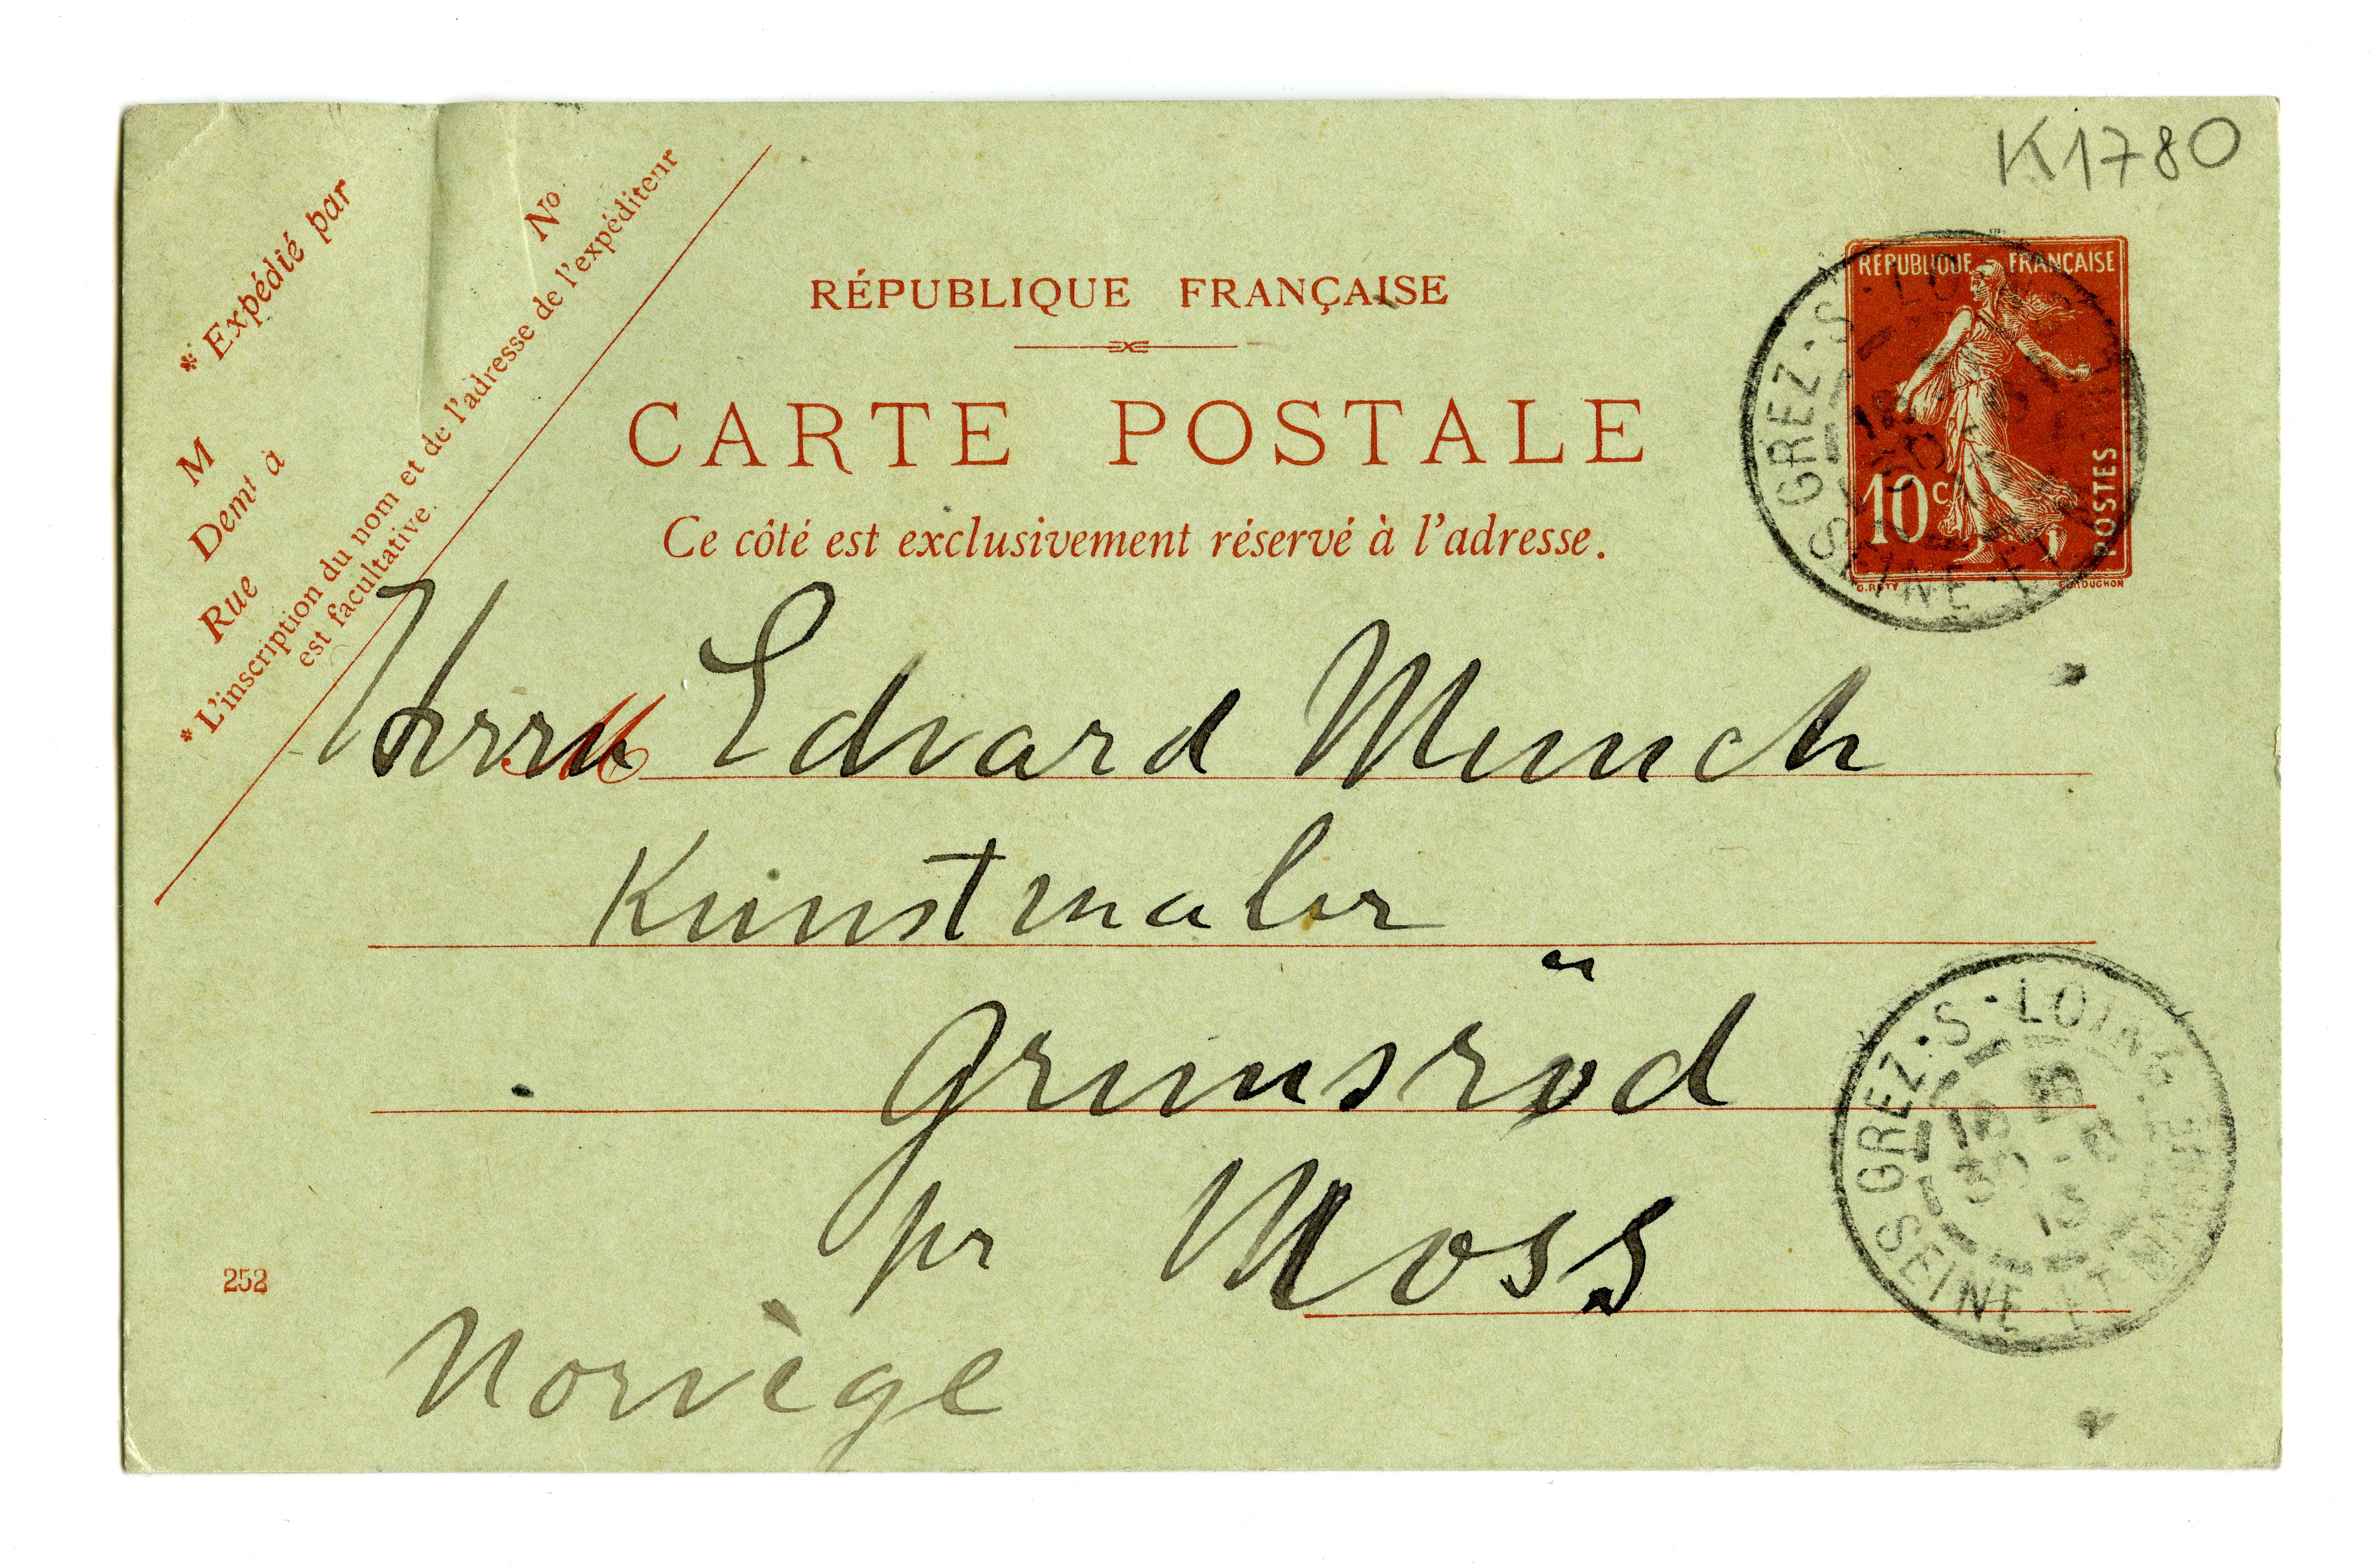 K1780
* Expédié par
M
Demt à
Rue
No
* L'inscription du nom et de l'adresse de l'expéditeur
est facultative.
RÉPUBLIQUE FRANÇAISE
CARTE POSTALE
Ce côté est exclusivement réservé à l'adresse.
RÉPUBLIQUE FRANÇAISE
10c
POSTES
O. ROTY E. MOUCHON
GREZ-S-LOING
SEINE-ET-MARNE
M
Herrn Edvard Munch
Kunstmaler
Grimsröd
pr Moss
Norvège
252
GREZ-S-LOING
18
30
13
SEINE-ET-MARNE